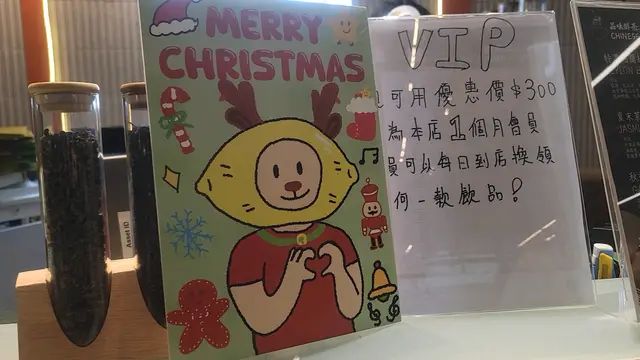 MERRY
CHRISTMAS
VIP
可用優惠價$300
為本店1個月會員
員可以每日到店換領
何一款飲品!
Asset ID
CHINESE